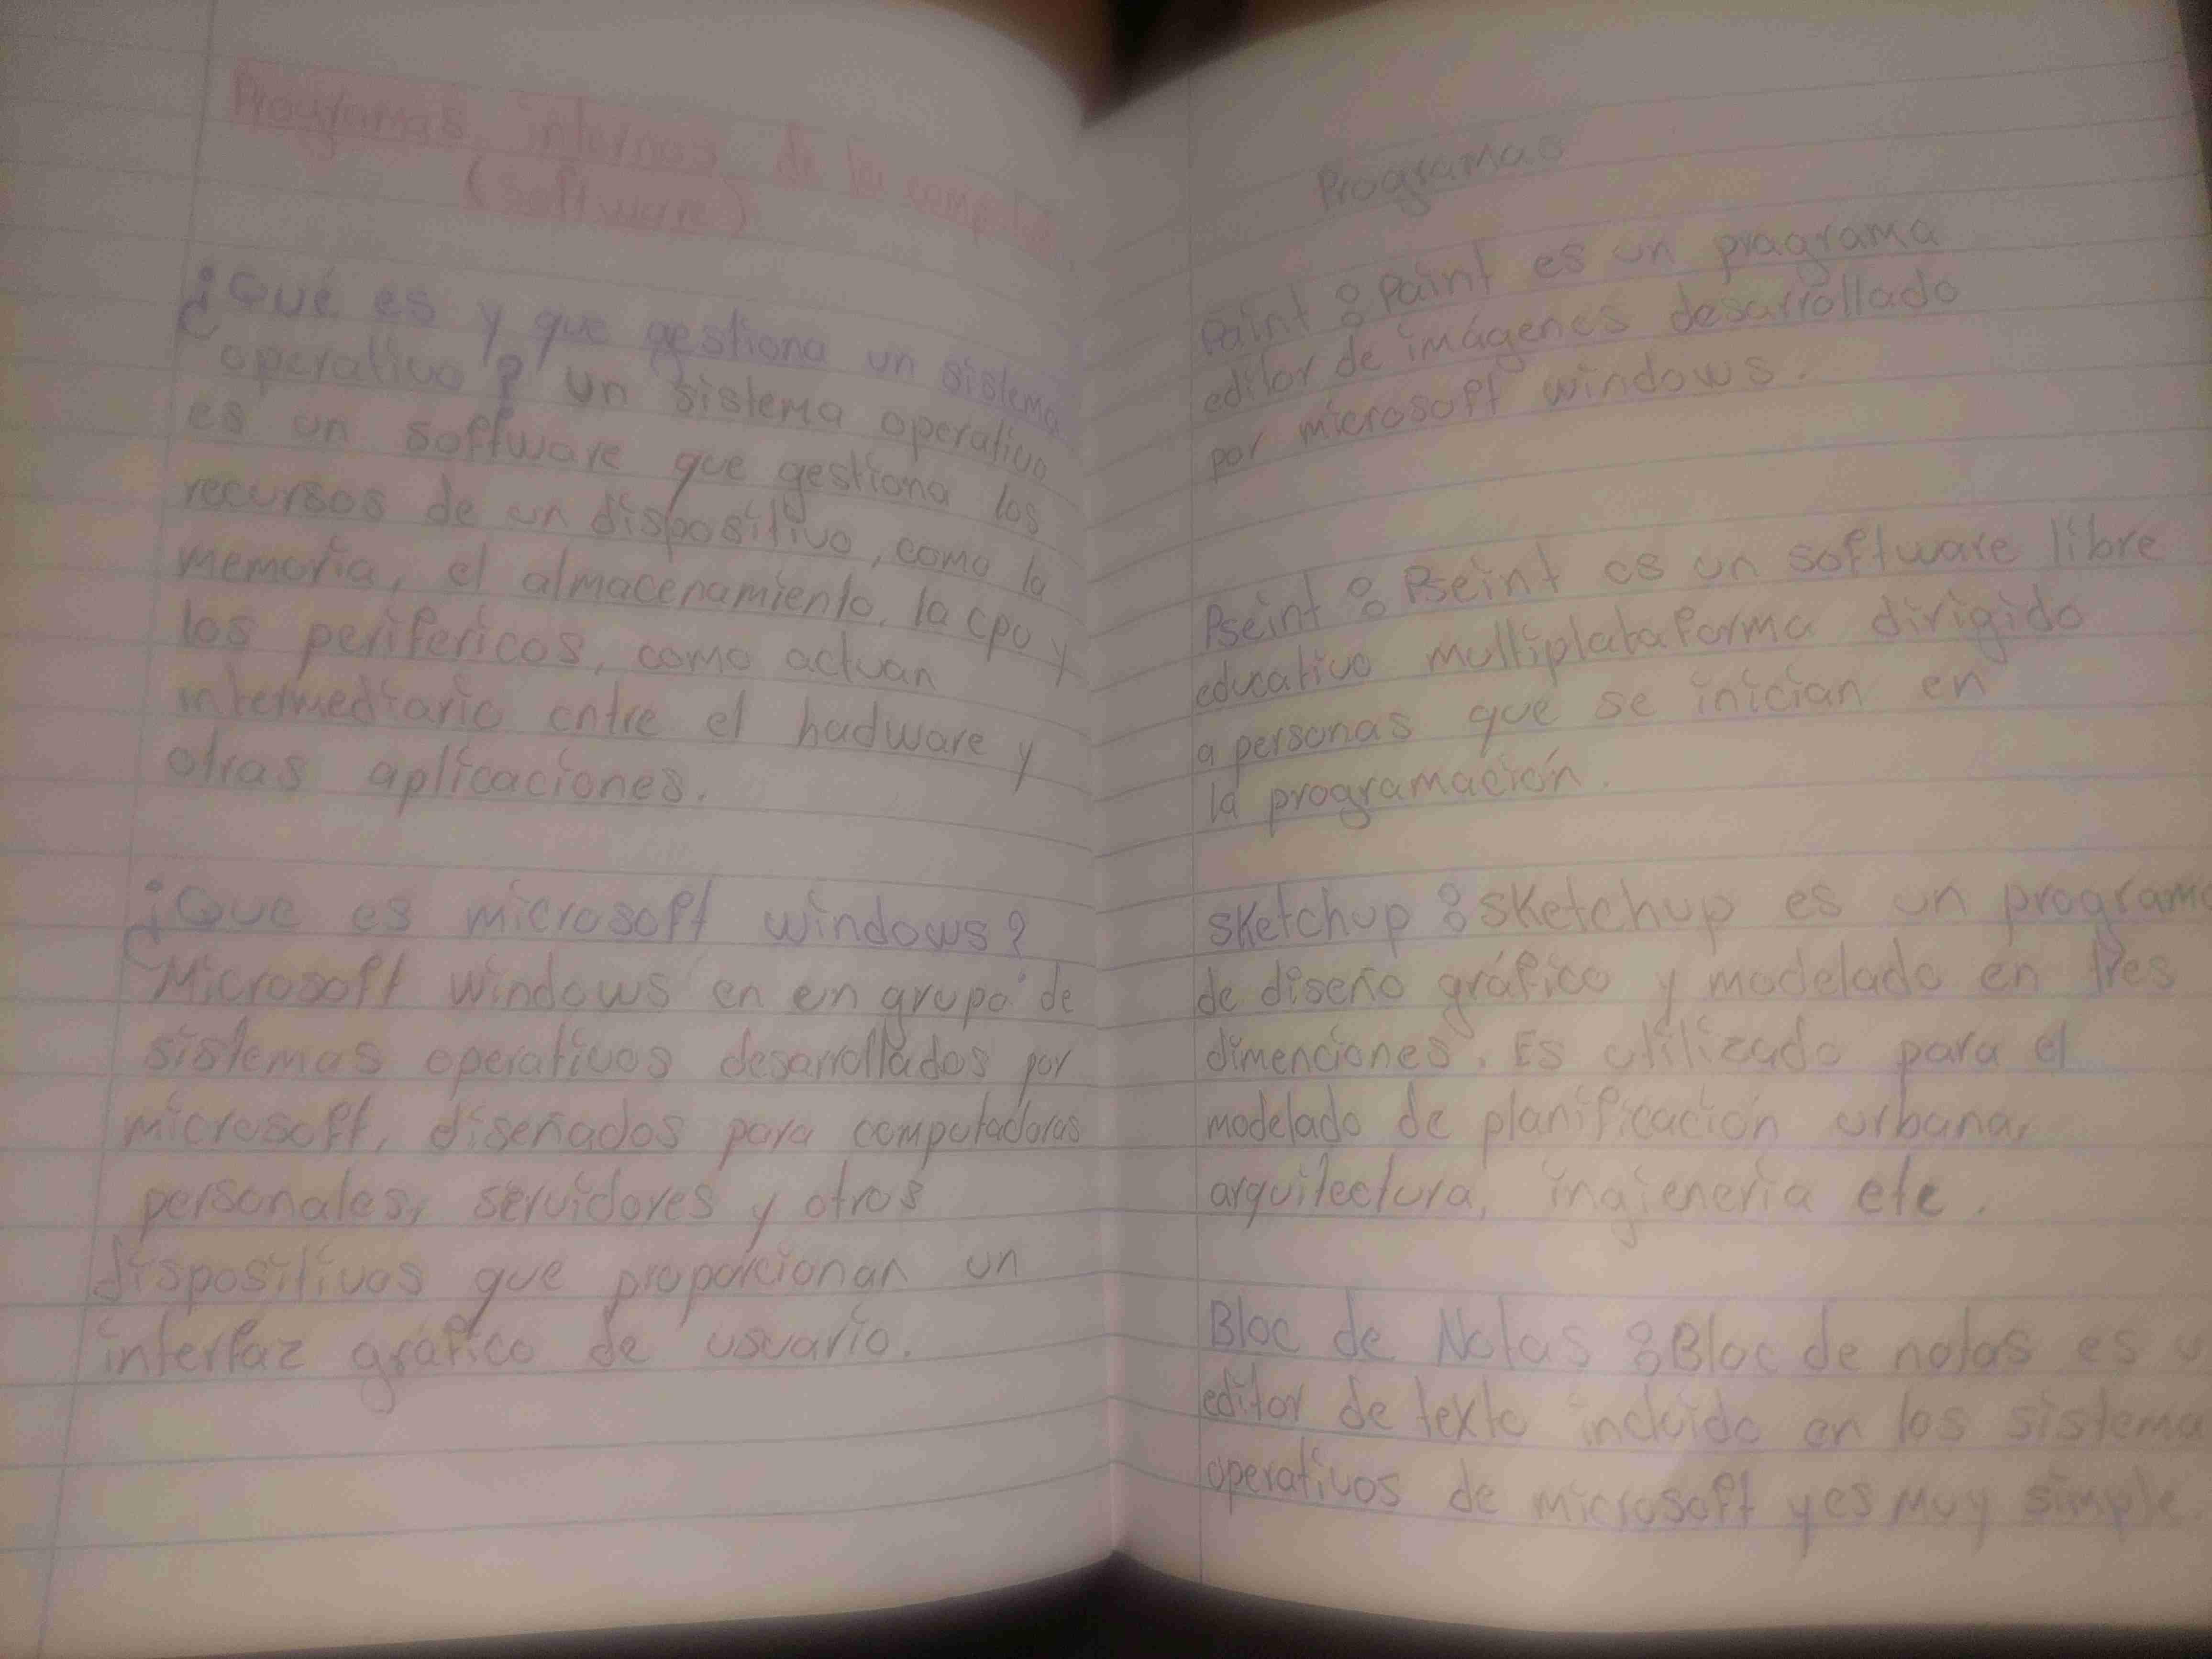 Programas internos de la
(software)
¿Qué es y que gestiona un sistema
operativo? un sistema operativo
es un software que gestiona los
recursos de un dispositivo, como la
memoria, el almacenamiento, la cpu y
los perifericos, como actuan
intermediario entre el hadware y
otras aplicaciones.
¿Que es microsoft windows?
Microsoft windows en en grupo de
sistemas operativos desarrollados por
microsoft, diseñados para computadoras
personales, servidores y otros
dispositivos que proporcionan un
interfaz gráfico de usuario.
Programas
Paint : Paint es un programa
editor de imágenes desarrollado
por microsoft windows.
Pseint : Pseint es un software libre
educativo multiplataforma dirigido
a personas que se inician en
la programación.
sketchup : sketchup es un programa
de diseño gráfico y modelado en tres
dimenciones. Es utilizado para el
modelado de planificación urbana,
arquitectura, ingieneria etc.
Bloc de Notas : Bloc de notas es
editor de texto incluido en los sistema
operativos de microsoft y es muy simple.